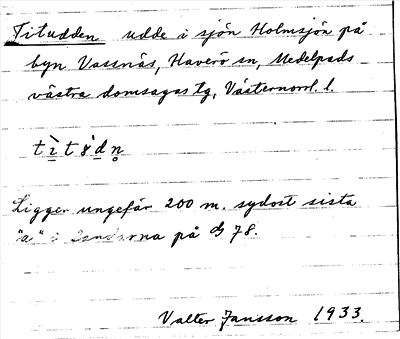 Titudden udde i sjön Holmsjön på
byn Vassnäs, Haverö sn, Medelpads
västra domsagas tg, Västernorrl. l.
Ligger ungefär 200 m. sydost sista
"a" i på G 78.
Valter Jansson 1933.